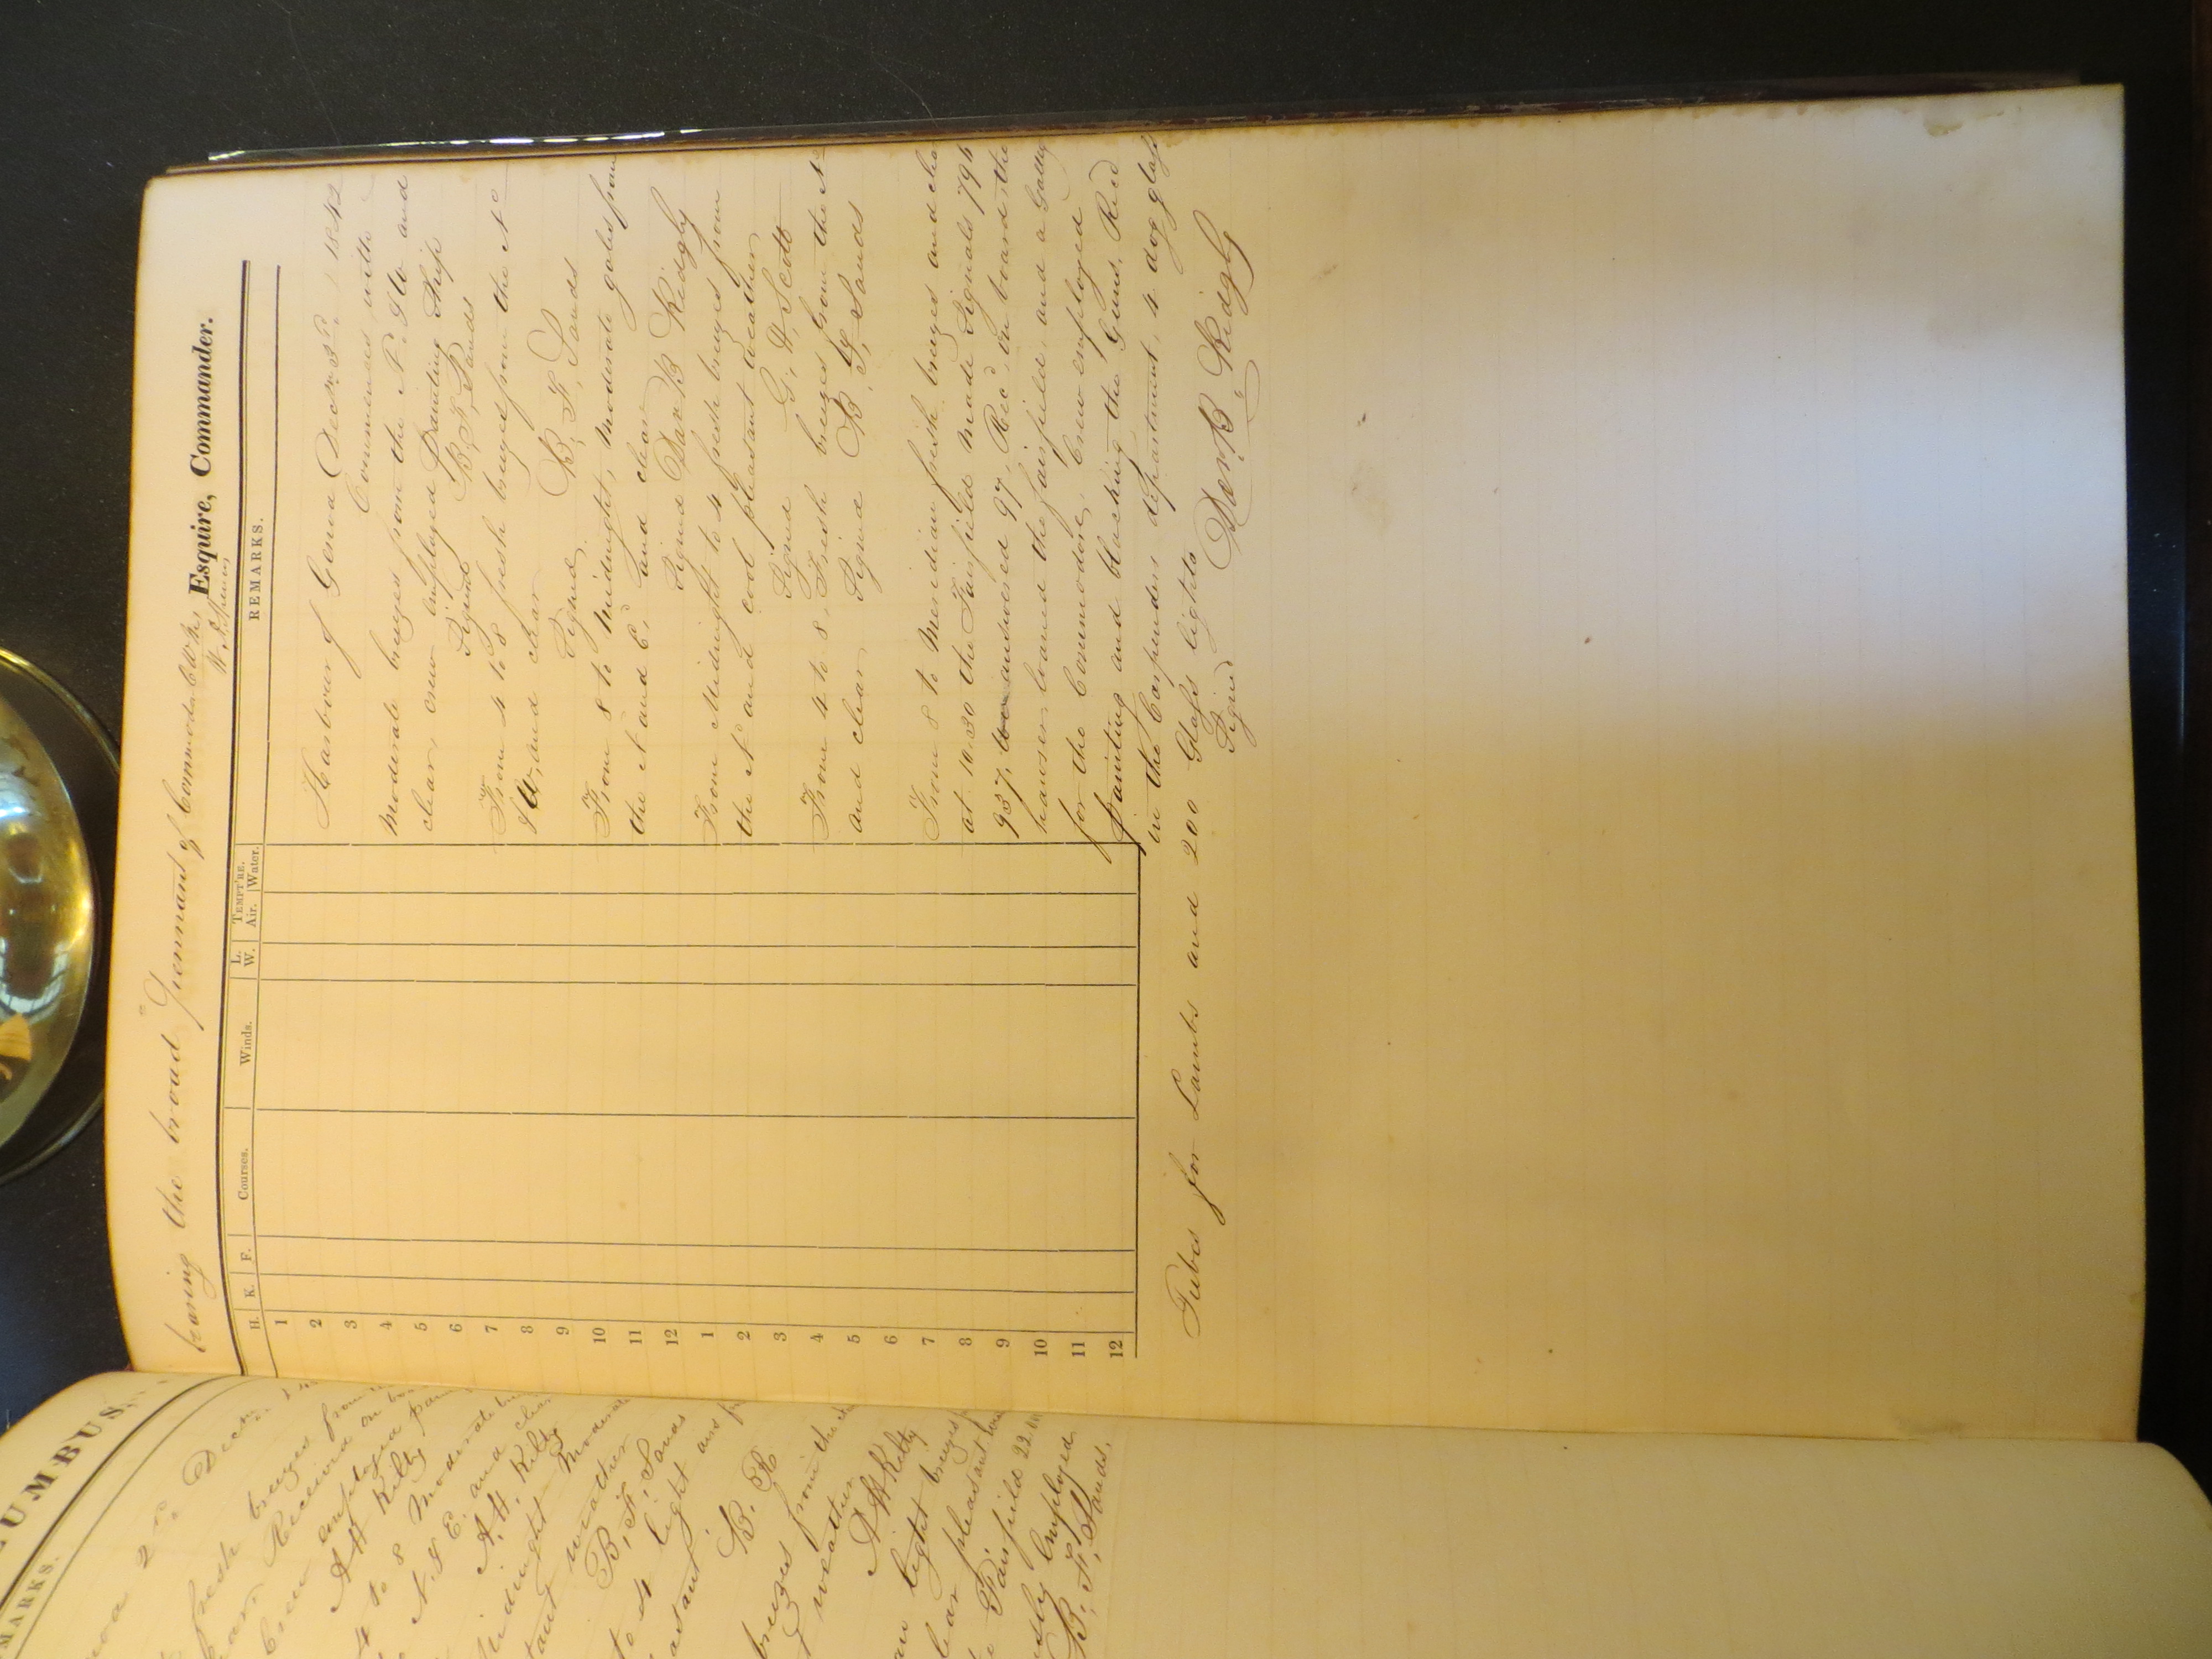 UMBUS,
MARKS.
2nd Decem
fresh breezes from
Received on bo
crew employed pain
A H Kilty
4 to 8 Moderate bre
N. & E. and clea
A. H. Kilty
Midnight Moderate
weather
B. F. Sands
to 4 light and
B. R
breezes from the
weather
A H Kilty
light breezes
clear pleasant
Fairfield 22
Employed
B. F. Sands.
bearing the broad "Pennant" of Commodore
Esquire, Commander.
H. K. F. Courses. Winds. L. W. TEMPT'RE. Air. Water. REMARKS.
1
2
3
4
5
6
7
8
9
10
11
12
1
2
3
4
5
6
7
8
9
10
11
12
Harbour of Genoa Decm. 3d. 1842
Commences with
Moderate breezes from the N. & and
clear, crew employed painting Ship
Signed B. F. Sands
From 4 to 8 fresh breezes from the Nd
& W, and clear
Signed, B. F. Sands
From 8 to Midnight, Moderate gales from
the N and Ed and clear
Signed Danl B Ridgly
From Midnight to 4 fresh breezes from
the N and cool pleasant weather
Signed G. H. Scott
From 4 to 8, Fresh breezes from the Nd
and clear Signed B. F. Sands
From 8 to Meridian fresh breezes and clea
at 10.30 the Fairfield made Signals 796
937, we answered 97, Recd on board, the
hawser loaned the Fairfield, and a Galley
for the Commodore, Crew employed
painting and blacking the Guns, Recd
in the Carpenders department, 4 dog glass
Tubes for Lamps and 200 Glass lights
Signed Danl B. Ridgly